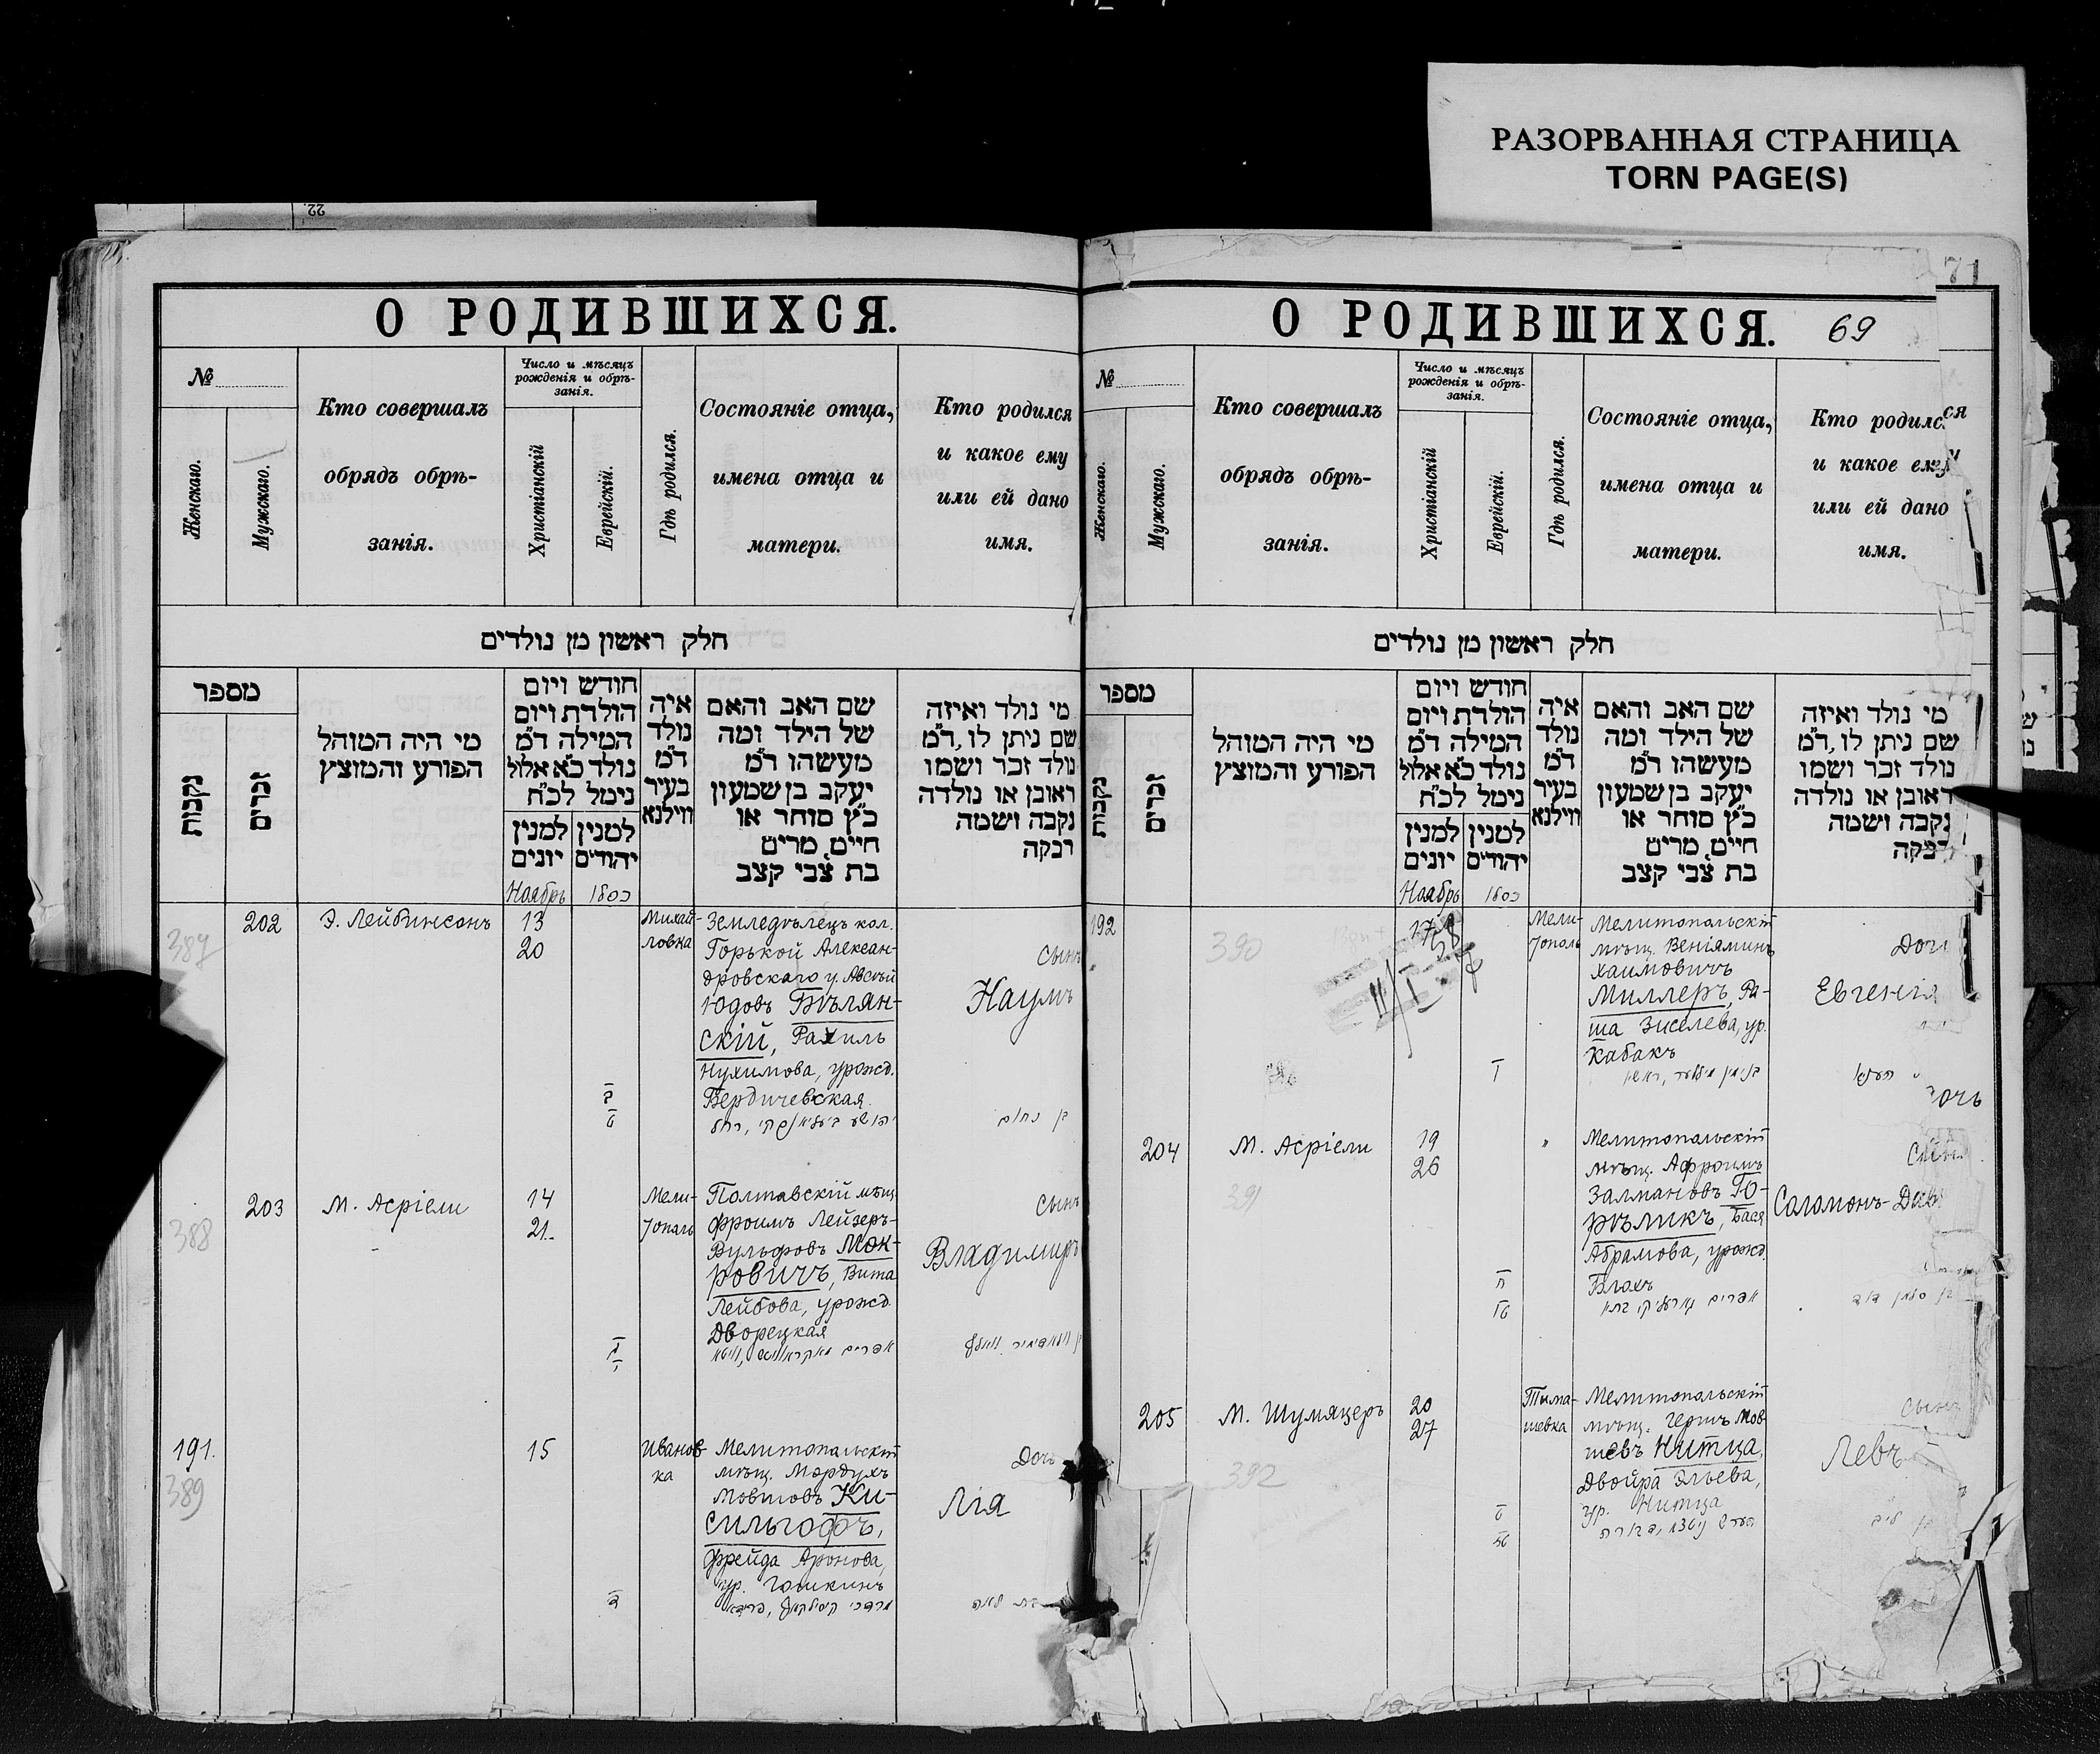 РАЗОРВАННАЯ СТРАНИЦА
TORN PAGE(S)
22
71
О РОДИВШИХСЯ.
№
Женскаго.
Мужскаго.
Кто совершалъ
обрядъ обрѣ-
занія.
Число и мѣсяцъ
рожденія и обрѣ-
занія.
Христіанскій
Еврейскій.
Гдѣ родился.
Состояніе отца,
имена отца и
матери.
Кто родился
и какое ему
или ей дано
имя.
חלק ראשון מן נולדים
מספר
נקבות
זכרים
מי היה המוהל
הפורע והמוצץ
חודש ויום
הולדת ויום
המילה ד"מ
נולד כ"א אלול
נימל לכ"ח
למנין
יונים
למנין
יהודים
איה
נולד
ד"מ
בעיר
ווילנא
שם האב והאם
של הילד ומה
מעשהו ד"מ
יעקב בן שמעון
כ"ץ סוחר או
חיים, מרים
בת צבי קצב
מי נולד ואיזה
שם ניתן לו, ד"מ
נולד זכר ושמו
ראובן או נולדה
נקבה ושמה
רבקה
Ноябрь
202
Э. Лейбинсонъ
13
20
Михай-
ловка
Земледѣлецъ кол.
Горькой Алексан-
дровскаго у.
Юдовъ Бѣлян-
скій, Рахиль
Нухимова, урожд.
Бердичевская
Сынъ
Наумъ
בן נחום
387
203
М. Асріели
14
21
Мели-
тополь
Полтавскій мѣщ.
Фроимъ Лейзеръ-
Вульфовъ Мок-
ровичъ, Вита
Лейбова, урожд.
Дворецкая
Сынъ
Владимиръ
388
191.
15
Иванов-
ка
Мелитопольскій
мѣщ. Мордухъ
Мовшовъ Ки-
сильгофъ,
Фрейда Аронова,
ур. Гошкинъ
Дочь
Лія
389
О РОДИВШИХСЯ.
69
№
Женскаго.
Мужскаго.
Кто совершалъ
обрядъ обрѣ-
занія.
Число и мѣсяцъ
рожденія и обрѣ-
занія.
Христіанскій
Еврейскій.
Гдѣ родился.
Состояніе отца,
имена отца и
матери.
Кто родился
и какое ему
или ей дано
имя.
חלק ראשון מן נולדים
מספר
נקבות
זכרים
מי היה המוהל
הפורע והמוצץ
חודש ויום
הולדת ויום
המילה ד"מ
נולד כ"א אלול
נימל לכ"ח
למנין
יונים
למנין
יהודים
איה
נולד
ד"מ
בעיר
ווילנא
שם האב והאם
של הילד ומה
מעשהו ד"מ
יעקב בן שמעון
כ"ץ סוחר או
חיים, מרים
בת צבי קצב
מי נולד ואיזה
שם ניתן לו, ד"מ
נולד זכר ושמו
ראובן או נולדה
נקבה ושמה
רבקה
Ноябрь
192
390
17
Мели-
тополь
Мелитопольскій
мѣщ. Веніяминъ
Хаимовичъ
Миллеръ, Ра-
ша Зиселева, ур.
Кабакъ
Дочь
Евгенія
204
М. Асріели
19
26
"
Мелитопольскій
мѣщ. Афроимъ
Залмановъ Го-
рѣликъ, Бася
Абрамова, урожд.
Блохъ
Сынъ
Саломонъ-Дав
391
205
М. Шумяцеръ
20
27
Тима-
шевка
Мелитопольскій
мѣщ. Гершъ Мов-
шевъ Нитца,
Двойра Эльева,
ур. Нитца
Сынъ
Левъ
392